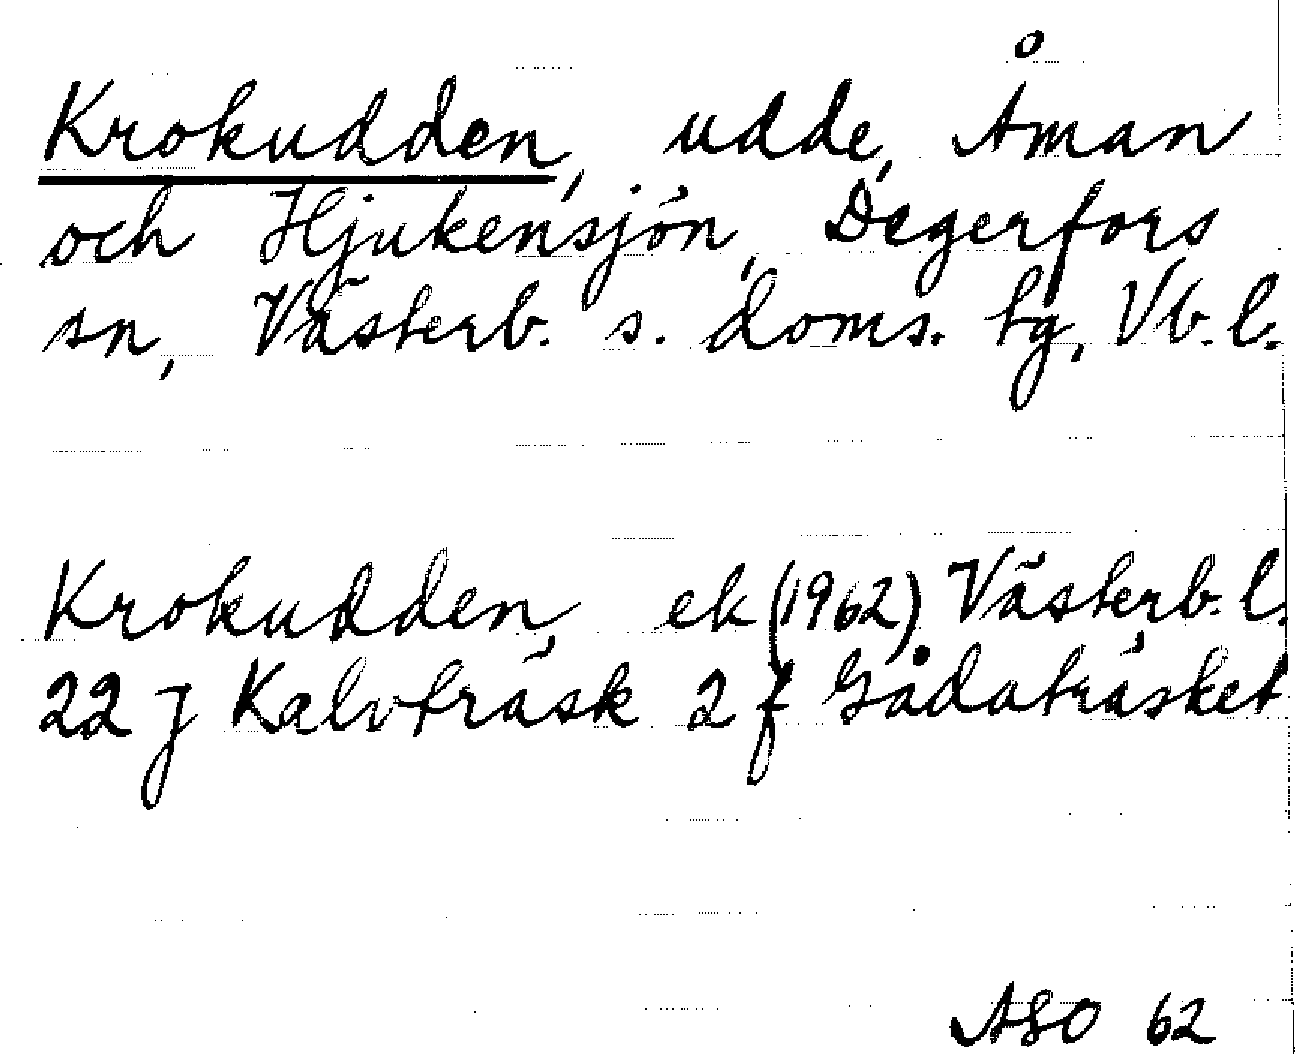 Krokudden, udde, Åman
och Hjukensjön, Degerfors
sn, Västerb. s. doms. tg, Vb. l.
Krokudden, ek (1962) Västerb. l.
22 J Kalvträsk 2 f Gådaträsket
ASO 62